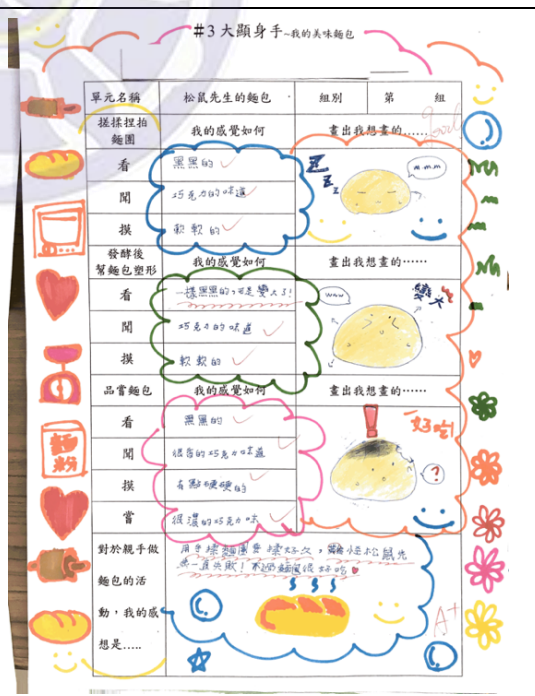 #3 大顯身手~我的美味麵包
單元名稱 松鼠先生的麵包 組別 第 組
搓揉捏拍麵團 我的感覺如何 畫出我想畫的…… Good
看 黑黑的
聞 巧克力的味道
摸 軟軟的
Z Z Z
m.m.m
發酵後幫麵包塑形 我的感覺如何 畫出我想畫的……
看 一樣黑黑的,可是變大了!
聞 巧克力的味道
摸 軟軟的
wow
變大
品嘗麵包 我的感覺如何 畫出我想畫的……
看 黑黑的
聞 很香的巧克力味道
摸 有點硬硬的
嘗 很濃的巧克力味
好吃!
?
麵粉
對於親手做麵包的活動,我的感想是…..
用手揉麵團要揉好久,難怪松鼠先
一直失敗!不過麵包很好吃
A+